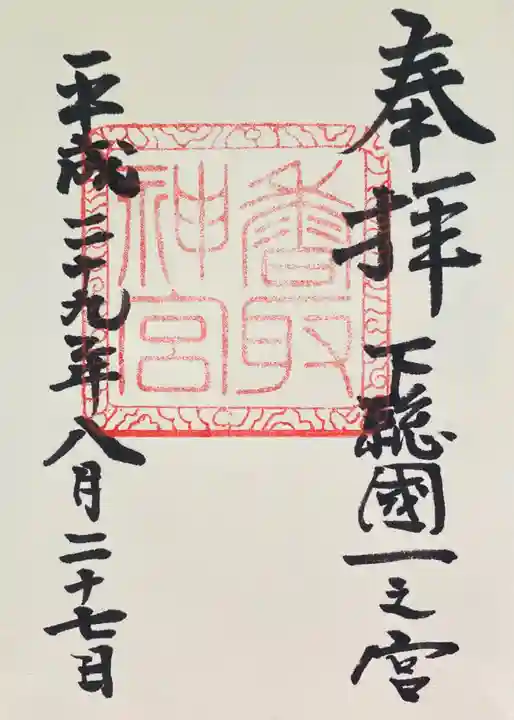 奉拝
下總國一之宮
香取
神宮
平成二十九年八月二十七日